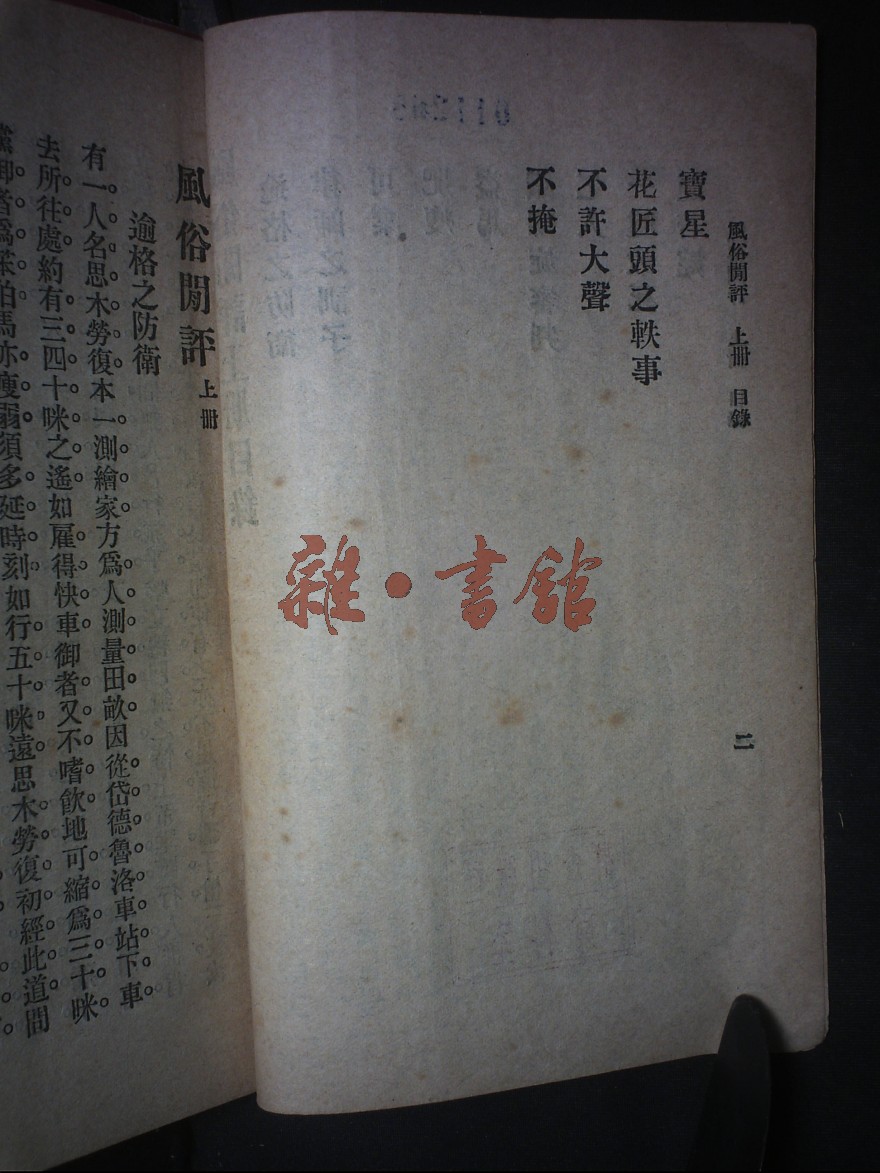 風俗閒評 上册 目錄
二
寶星
花匠頭之軼事
不許大聲
不掩
風俗閒評 上册
逾格之防衛
有一人名思木勞復本一測繪家方爲人測量田畝因從岱德魯洛車站下車
去所往處約有三四十咪之遙如雇得快車御者又不嗜飲地可縮爲三十咪
御者爲笨伯馬亦瘦弱須多延時刻如行五十咪遠思木勞復初經此道間
雜·書館